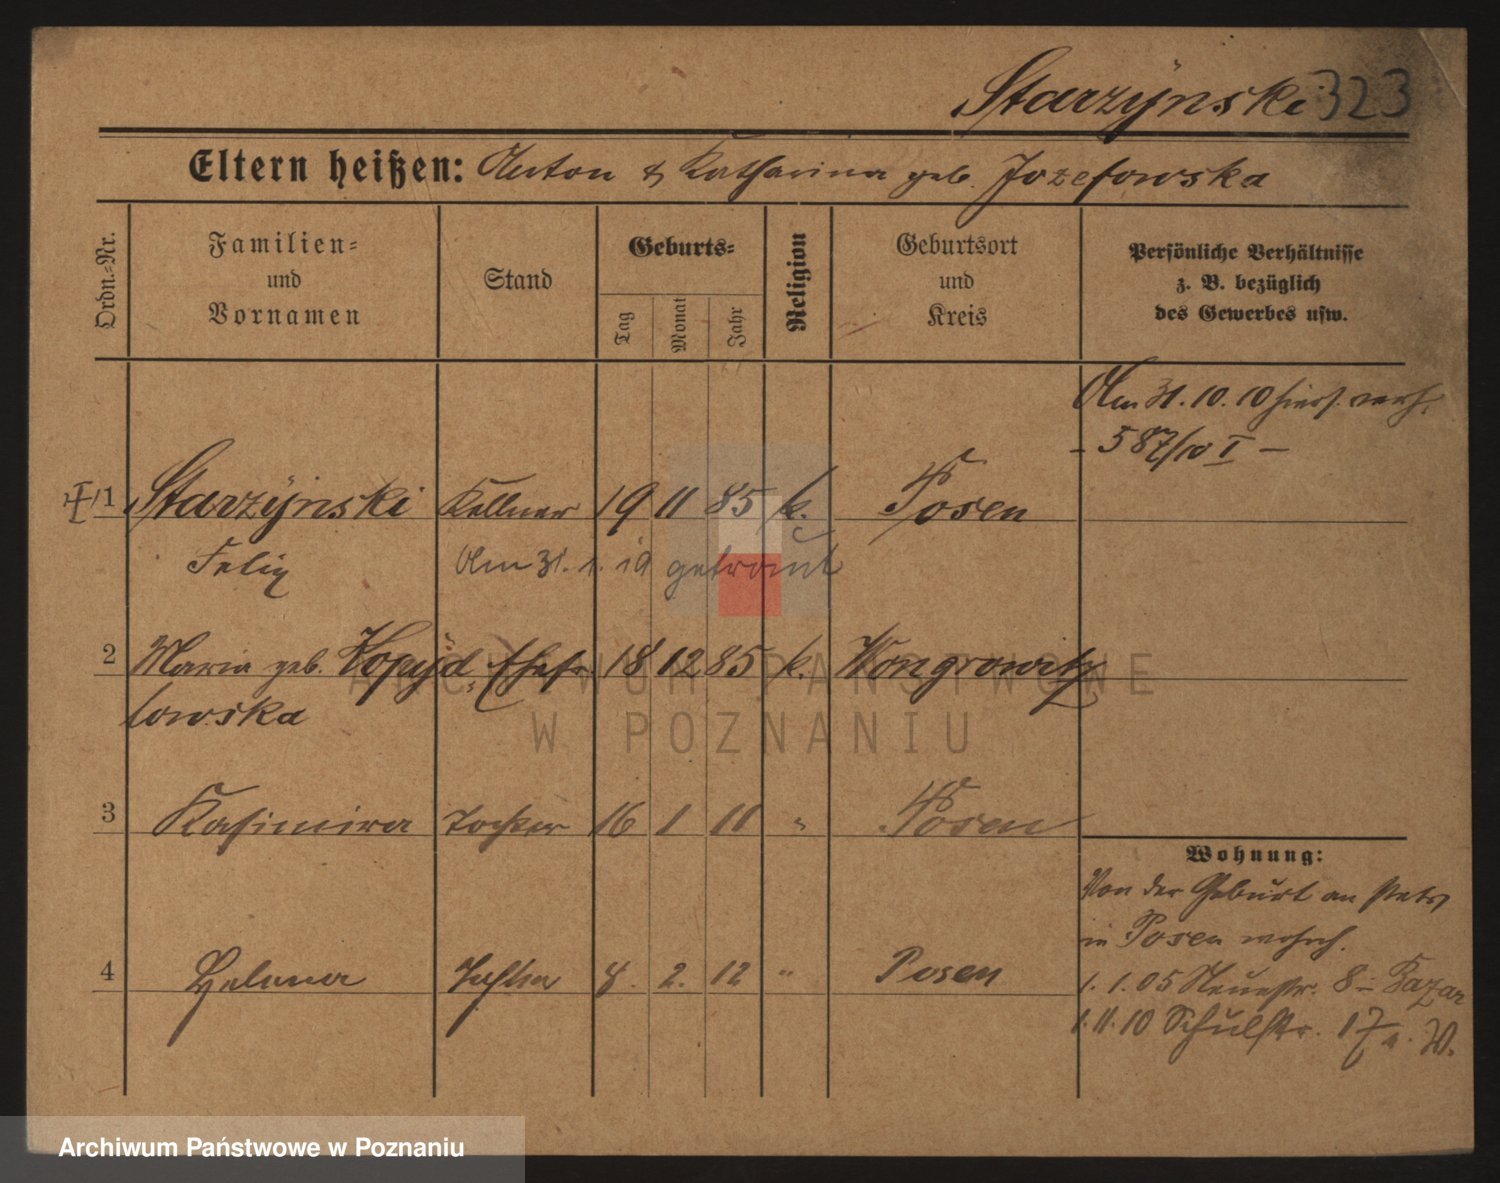 Starzÿnski 323
Eltern heißen: Anton & Katharina geb. Jozefowska
Ordn.=Nr.
Familien=
und
Vornamen
Stand
Geburts=
Tag
Monat
Jahr
Religion
Geburtsort
und
Kreis
Persönliche Verhältnisse
z. B. bezüglich
des Gewerbes usw.
Am 31.10.10 hiers. verh.
- 587/10 I -
1 Starzÿnski Kellner 19 11 85 k. Posen
Felix Am 31. 1. 19 getraut
2 Maria geb. Ehefr. 18 12 85 k. Wongrowitz
lowska
3 Kasimira Tochter 16 1 11 " Posen
Wohnung:
Von der Geburt an stets
in Posen wohnh.
4 Helena Tochter 8. 2. 12 " Posen
1. 1. 05 Neuestr. 8 - Bazar
1. 11. 10 Schulstr. 17 a. W.
ARCHIWUM PAŃSTWOWE
W POZNANIU
Archiwum Państwowe w Poznaniu